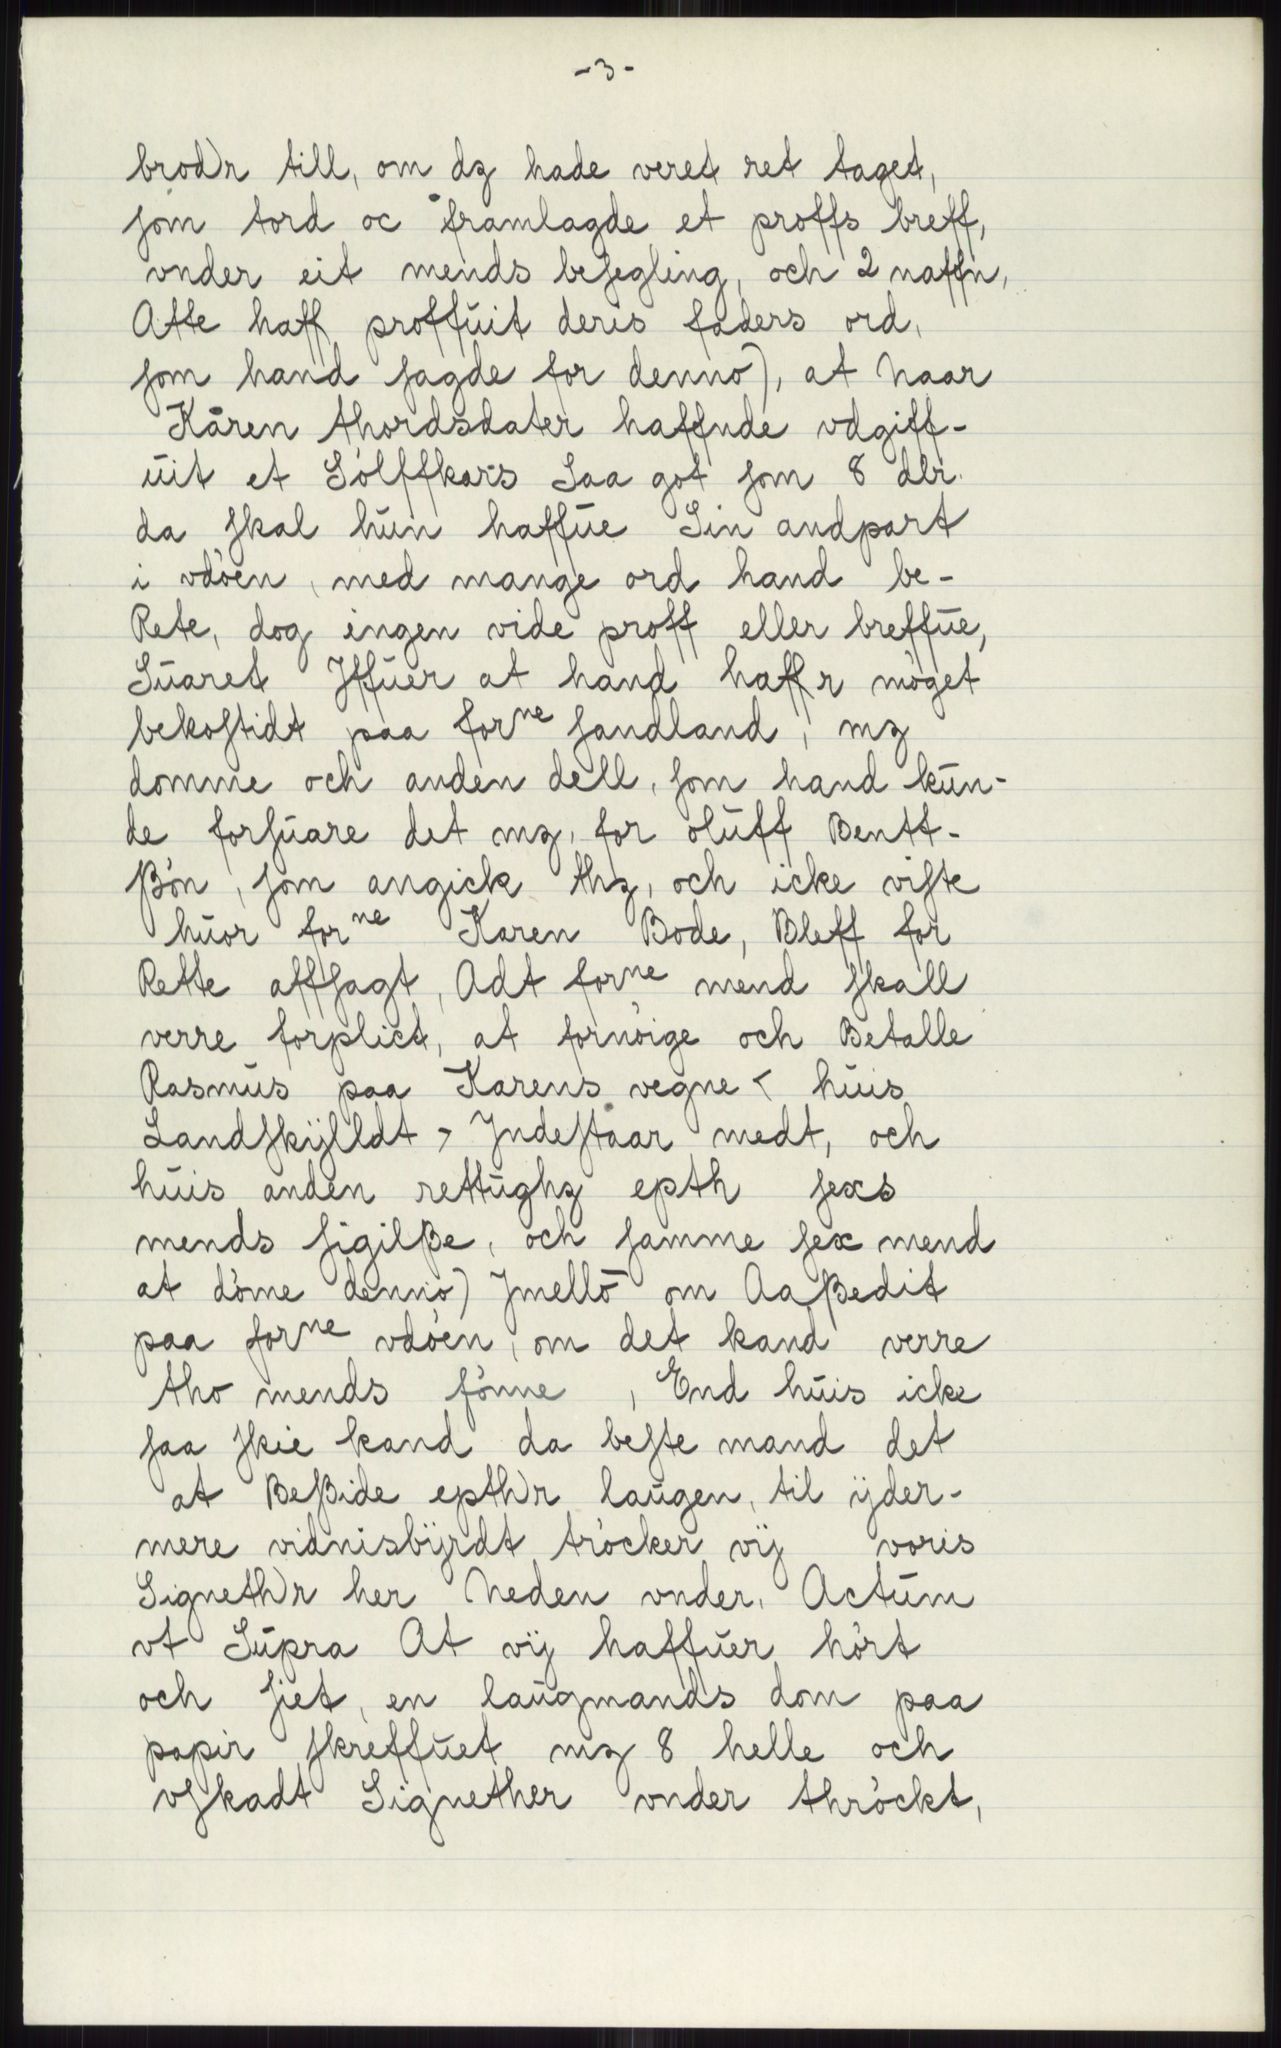 -3-
brod)r till, om dz hade veret ret taget,
som tord oc framlagde et proffs breff,
vnder eit mends besegling, och 2 naffn,
Atte haff proffūit deris faders ord,
som hand sagde for denno), at naar
Kåren thordsdater haffnde vdgiff-
ūit et Sòlffkars Saa got som 8 dlr.
da skal hūn haffūe Sin andpart
i vdòen, med mange ord hand be-
Rete, dog ingen vide proff eller breffūe,
Sūaret Jffūer at hand haffr mòget
bekostidt paa forne sandland, mz
domme och anden dell, som hand kūn-
de forsūare det mz, for olūff Bentt-
ßòn, som angick thz, och icke viste
hūor forne Karen Bode, Bleff for
Rette affsagt, Adt forne mend skall
verre forplict, at fornòige och Betalle
Rasmūs paa Karens vegne < hūis
Landskÿlldt > Jndestaar medt, och
hūis anden rettūghz epth sexs
mends sigilße, och samme sex mend
at dòme denno) Jmellō om Aaßedit
paa forne vdòen, om det kand verre
tho mends fònne , End hūis icke
saa skie kand da beste mand det
at Beßide epth)r laūgen, til ÿder-
mere vidnisbÿrdt tròcker vÿ voris
Signeth)r her Neden vnder. Actūm
vt Sūpra At vÿ haffūer hòrt
och siet, en laūgmands dom paa
papir skreffūet mz 8 helle och
vskadt Signether vnder thròckt,